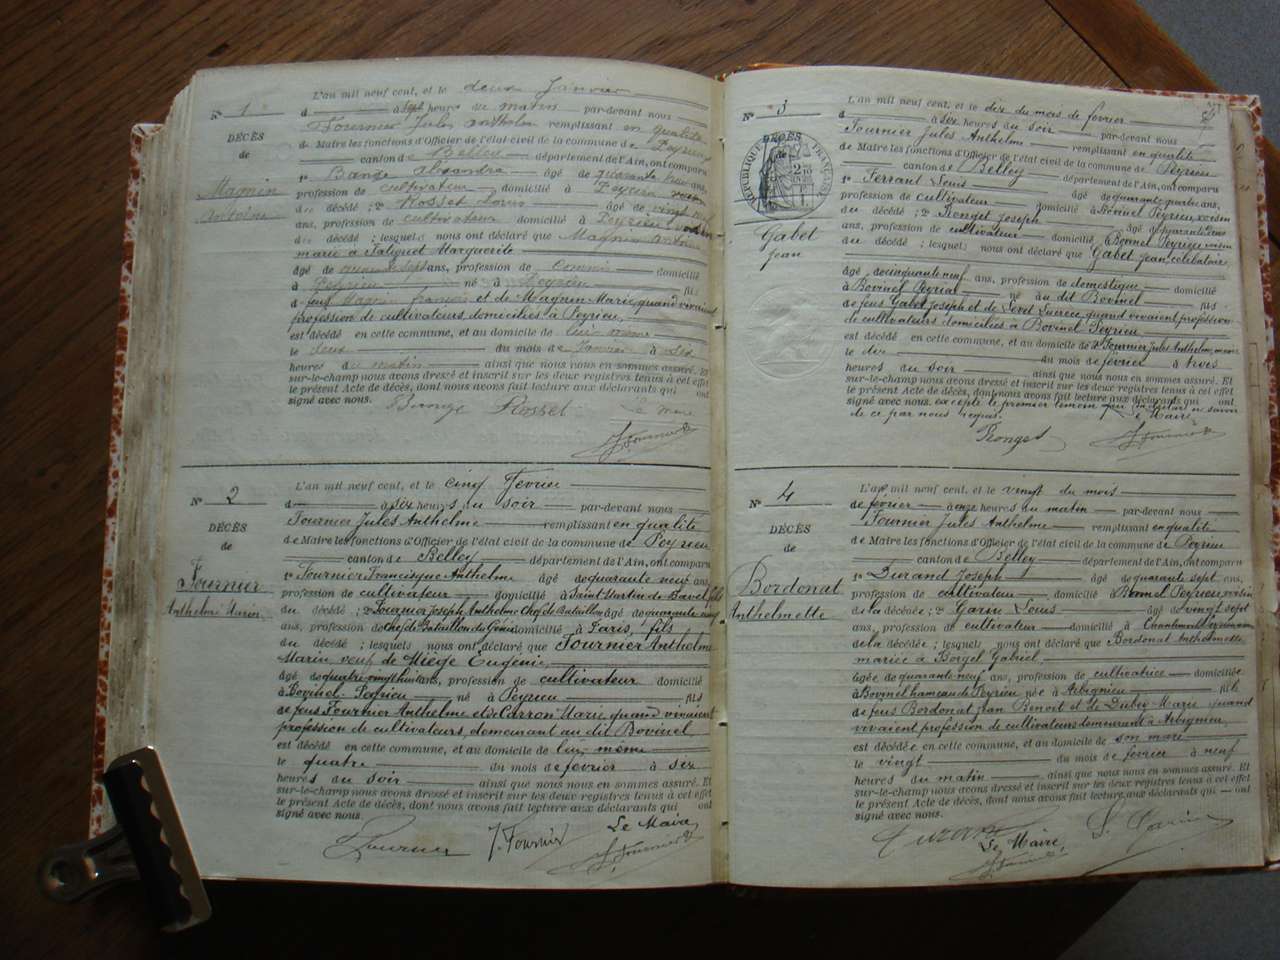 N° 1
DÉCÈS
de
Magnin
Antoine
L'an mil neuf cent, et le deux Janvier
d à sept heures du matin par-devant nous
Fournier Jules Anthelme remplissant en qualité
de Maire les fonctions d'Officier de l'état civil de la commune de Peyrieu
canton de Belley département de l'Ain, ont comparu
1° Bange âgé de quarante ans,
profession de cultivateur domicilié à Peyrieu voisin
du décédé ; 2° Rosset Louis âgé de vingt
ans, profession de cultivateur domicilié à Peyrieu, voisin
du décédé ; lesquels nous ont déclaré que Magnin Antoine
marié à Marguerite
âgé de quarante sept ans, profession de domicilié
à Peyrieu né à Peyrieu fils
de feu Magnin François et de Magnin Marie, quand vivaient
profession de cultivateurs, domiciliés à Peyrieu,
est décédé en cette commune, et au domicile de lui même
le deux du mois de Janvier à six
heures du matin ainsi que nous nous en sommes assuré. Et
sur-le-champ nous avons dressé et inscrit sur les deux registres tenus à cet effet
le présent Acte de décès, dont nous avons fait lecture aux déclarants qui ont
signé avec nous. Bange Rosset Le maire
J. Fournier
N° 2
DÉCÈS
de
Fournier
Anthelme Marin
L'an mil neuf cent, et le cinq Février
d à six heures du soir par-devant nous
Fournier Jules Anthelme remplissant en qualité
de Maire les fonctions d'Officier de l'état civil de la commune de Peyrieu
canton de Belley département de l'Ain, ont comparu
1° Fournier Francisque Anthelme âgé de quarante neuf ans,
profession de cultivateur domicilié à Saint Martin de Bavel, fils
du décédé ; 2° Fournier Joseph Anthelme Chef de Bataillon âgé de quarante cinq
ans, profession de Chef de Bataillon du Génie domicilié à Paris, fils
du décédé ; lesquels nous ont déclaré que Fournier Anthelme
Marin veuf de Miège Eugénie,
âgé de quatre vingt huit ans, profession de cultivateur domicilié
à Bovinel-Peyrieu né à Peyrieu fils
de feus Fournier Anthelme et de Carron Marie quand vivaient
profession de cultivateurs, demeurant au dit Bovinel
est décédé en cette commune, et au domicile de lui, même
le quatre du mois de février à six
heures du soir ainsi que nous nous en sommes assuré. Et
sur-le-champ nous avons dressé et inscrit sur les deux registres tenus à cet effet
le présent Acte de décès, dont nous avons fait lecture aux déclarants qui ont
signé avec nous. Le Maire,
Fournier J. Fournier J. Fournier
N° 3
DÉCÈS
de
RÉPUBLIQUE FRANÇAISE
Gabet
Jean
L'an mil neuf cent, et le dix du mois de février
d à six heures du soir par-devant nous
Fournier Jules Anthelme remplissant en qualité
de Maire les fonctions d'Officier de l'état civil de la commune de Peyrieu
canton de Belley département de l'Ain, ont comparu
1° Ferrant Louis âgé de quarante quatre ans,
profession de cultivateur domicilié à Bovinel Peyrieu, voisin
du décédé ; 2° Ronget Joseph âgé de quarante deux
ans, profession de cultivateur domicilié à Bovinel Peyrieu voisin
du décédé ; lesquels nous ont déclaré que Gabet Jean, célibataire,
âgé de cinquante neuf ans, profession de domestique domicilié
à Bovinel Peyrieu né au dit Bovinel fils
de feus Gabet Joseph et de Lucrèce, quand vivaient profession
de cultivateurs domiciliés à Bovinel Peyrieu
est décédé en cette commune, et au domicile de Fournier Jules Anthelme, maire
le dix du mois de février à trois
heures du soir ainsi que nous nous en sommes assuré. Et
sur-le-champ nous avons dressé et inscrit sur les deux registres tenus à cet effet
le présent Acte de décès, dont nous avons fait lecture aux déclarants qui ont
signé avec nous. excepté le premier témoin qui a déclaré ne savoir
de ce par nous requis. Le Maire
Ronget J. Fournier
N° 4
DÉCÈS
de
Bordonat
Anthelmette
L'an mil neuf cent, et le vingt du mois
de février à onze heures du matin par-devant nous
Fournier Jules Anthelme remplissant en qualité
de Maire les fonctions d'Officier de l'état civil de la commune de Peyrieu
canton de Belley département de l'Ain, ont comparu
1° Durand Joseph âgé de quarante sept ans,
profession de cultivateur domicilié à Bovinel Peyrieu, voisin
de la décédée ; 2° Garin Louis âgé de vingt sept
ans, profession de cultivateur domicilié à
de la décédée ; lesquels nous ont déclaré que Bordonat Anthelmette
mariée à Borgel Gabriel
âgée de quarante neuf ans, profession de cultivatrice domiciliée
à Bovinel hameau de Peyrieu née à Arbignieu fille
de feus Bordonat Jean Benoit et de Marie quand
vivaient profession de cultivateurs demeurant à Arbignieu,
est décédée en cette commune, et au domicile de son mari
le vingt du mois de février à neuf
heures du matin ainsi que nous nous en sommes assuré. Et
sur-le-champ nous avons dressé et inscrit sur les deux registres tenus à cet effet
le présent Acte de décès, dont nous avons fait lecture aux déclarants qui ont
signé avec nous.
Durand Le Maire, L. Garin
J. Fournier